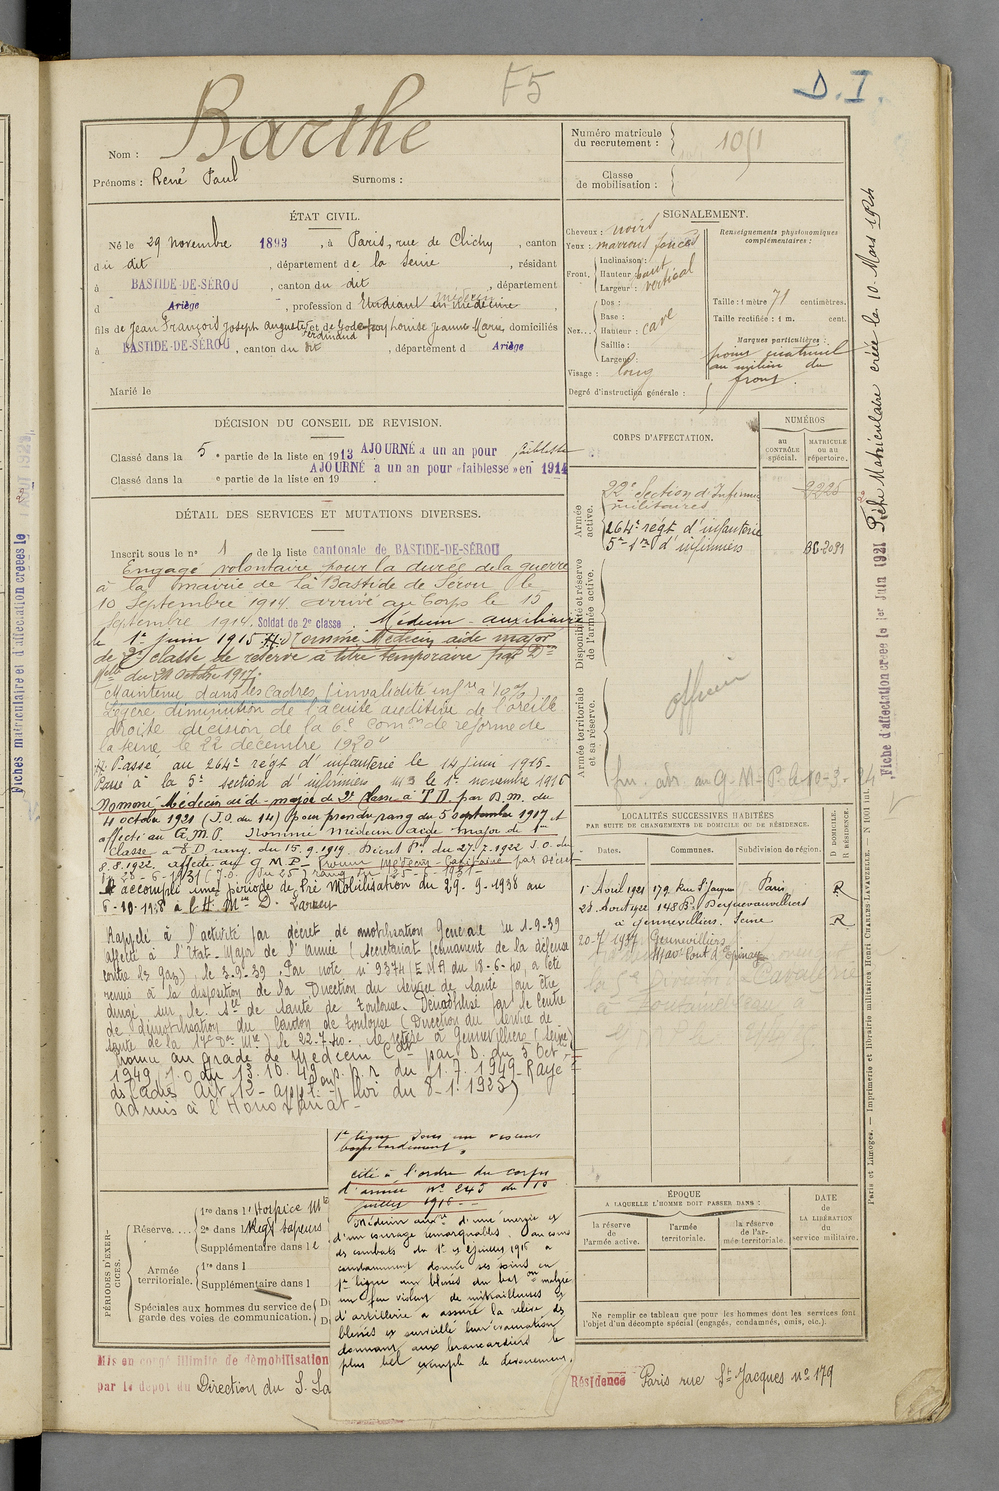 F5
D. I.
Barthe
Nom :
Prénoms : René Paul Surnoms :
Numéro matricule du recrutement : 1051
Classe de mobilisation :
ÉTAT CIVIL.
Né le 29 novembre 1893, à Paris, rue de Clichy, canton
du dit, département de la Seine, résidant
à BASTIDE-DE-SÉROU, canton du dit, département
d Ariège, profession d'Etudiant en médecine
fils de Jean François Joseph Auguste Ferdinand et de Louise Jeanne Marie, domiciliés
à BASTIDE-DE-SÉROU, canton du dit, département d Ariège
Marié le
SIGNALEMENT.
Cheveux : noirs
Yeux : marrons foncés
Front, Inclinaison :
Hauteur : haut
Largeur : vertical
Nez... Dos :
Base :
Hauteur : cave
Saillie :
Largeur :
Visage : long
Degré d'instruction générale :
Renseignements physionomiques complémentaires :
Taille : 1 mètre 71 centimètres.
Taille rectifiée : 1 m. cent.
Marques particulières :
au milieu du
front.
DÉCISION DU CONSEIL DE REVISION.
Classé dans la 5e partie de la liste en 1913 AJOURNÉ à un an pour faiblesse
AJOURNÉ à un an pour «faiblesse» en 1914
Classé dans la e partie de la liste en 19
DÉTAIL DES SERVICES ET MUTATIONS DIVERSES.
Inscrit sous le n° 1 de la liste cantonale de BASTIDE-DE-SÉROU
Engagé volontaire pour la durée de la guerre
à la mairie de La Bastide de Sérou le
10 Septembre 1914. arrivé au Corps le 15
Septembre 1914. Soldat de 2e classe. Médecin-auxiliaire
le 1er juin 1915. Nommé Médecin aide major
de 2e classe de réserve à titre temporaire par Don
Melle du 20 Octobre 1917.
Maintenu dans les cadres (invalidité infre à 10%).
Légère diminution de l'acuité auditive de l'oreille
droite décision de la 6e Comon de réforme de
la Seine le 22 décembre 1920.
Passé au 264e régt d'infanterie le 14 juin 1915.
Passé à la 5e section d'infirmiers M3 le 1er novembre 1916
Nommé Médecin aide-major de 2e Classe à T D par D.M. du
11 octobre 1921 (J.O. du 14) pour prendre rang du 5 septembre 1917 et
affecté au G.M.P. Nommé médecin aide-major de 1ère
Classe à T D rang du 15.9.1919. Décret Pel du 27.7.1922 J.O. du
8.8.1922. affecté au G M P. Promu Médecin-Capitaine par Décret
du 20-6-1931 (J.O. du 25) rang du 25-6-1931.
a accompli une période de Pré Mobilisation du 29-9-1938 au
6-10-1938 à l'H. Mre D. Larrey
Rappelé à l'activité par décret de mobilisation Générale du 1-9-39
affecté à l'Etat-Major de l'Armée (secrétariat permanent de la défense
contre les gaz), le 3-9-39. Par note n° 9374/EMA du 18-6-40, a été
remis à la disposition de la Direction du Service de Santé, pour être
dirigé sur le Sce de Santé de Toulouse. Démobilisé par le Centre
de démobilisation du Canton de Toulouse (Direction du Service de
Santé de la 17e Don Mre) le 22-7-40. Se retire à Gennevilliers (Seine)
Promu au grade de Médecin Cdt par D. du 5 Oct.
1949 J.O. du 13.10.49 p.p.r du 1.7.1949. Rayé
des Cadres Art 12- appl. loi du 8-1-1925)
Admis à l'Honorariat-
CORPS D'AFFECTATION.
NUMÉROS
au CONTRÔLE spécial.
MATRICULE ou au répertoire.
Armée active.
22e Section d'Infirmiers militaires 2225
264e régt d'infanterie
5e Son d'infirmiers BC-2091
Disponibilité et réserve de l'armée active.
Armée territoriale et sa réserve.
officier
au G.M.P. le 10-3-24
LOCALITÉS SUCCESSIVES HABITÉES
PAR SUITE DE CHANGEMENTS DE DOMICILE OU DE RÉSIDENCE.
Dates. Communes. Subdivision de région. D DOMICILE. R RÉSIDENCE
1er Avril 1921 179 Rue St Jacques Paris R
28 Aout 1922 148 Bd
à Gennevilliers. Seine R
20-7 1937 Gennevilliers
Pont d'Epinay
PÉRIODES D'EXERCICES.
Réserve.... 1re dans l'Hospice Mte
2e dans le Régt Sapeurs
Supplémentaire dans le
Armée territoriale. 1re dans l
Supplémentaire dans l
Spéciales aux hommes du service de garde des voies de communication.
1re ligne sous un violent
bombardement.
cité à l'ordre du corps
d'armée n° 245 du 10
juillet 1916
Médecin auxre d'une énergie et
d'un courage remarquables. Au cours
des combats du 1er et 2 juillet 1916 a
constamment donné ses soins en
1re ligne aux blessés du bat on malgré
un feu violent de mitrailleuses et
d'artillerie a assuré la relève des
blessés et surveillé leur évacuation
donnant aux brancardiers le
plus bel exemple de dévouement.
ÉPOQUE
A LAQUELLE L'HOMME DOIT PASSER DANS :
la réserve de l'armée active.
l'armée territoriale.
la réserve de l'armée territoriale
DATE DE LA LIBÉRATION du service militaire.
Ne remplir ce tableau que pour les hommes dont les services font
l'objet d'un décompte spécial (engagés, condamnés, omis, etc.).
Mis en congé illimité de démobilisation
par le dépôt du Direction du S. Sa
Résidence Paris rue St Jacques n° 179
Fiche Matriculaire créée le 10 Mars 1924
Fiche d'affectation créée le 1er Juin 1921
Paris et Limoges. — Imprimerie et librairie militaires Henri CHARLES-LAVAUZELLE. — N° 1001 int.
Fiches matriculaire et d'affectation créées le